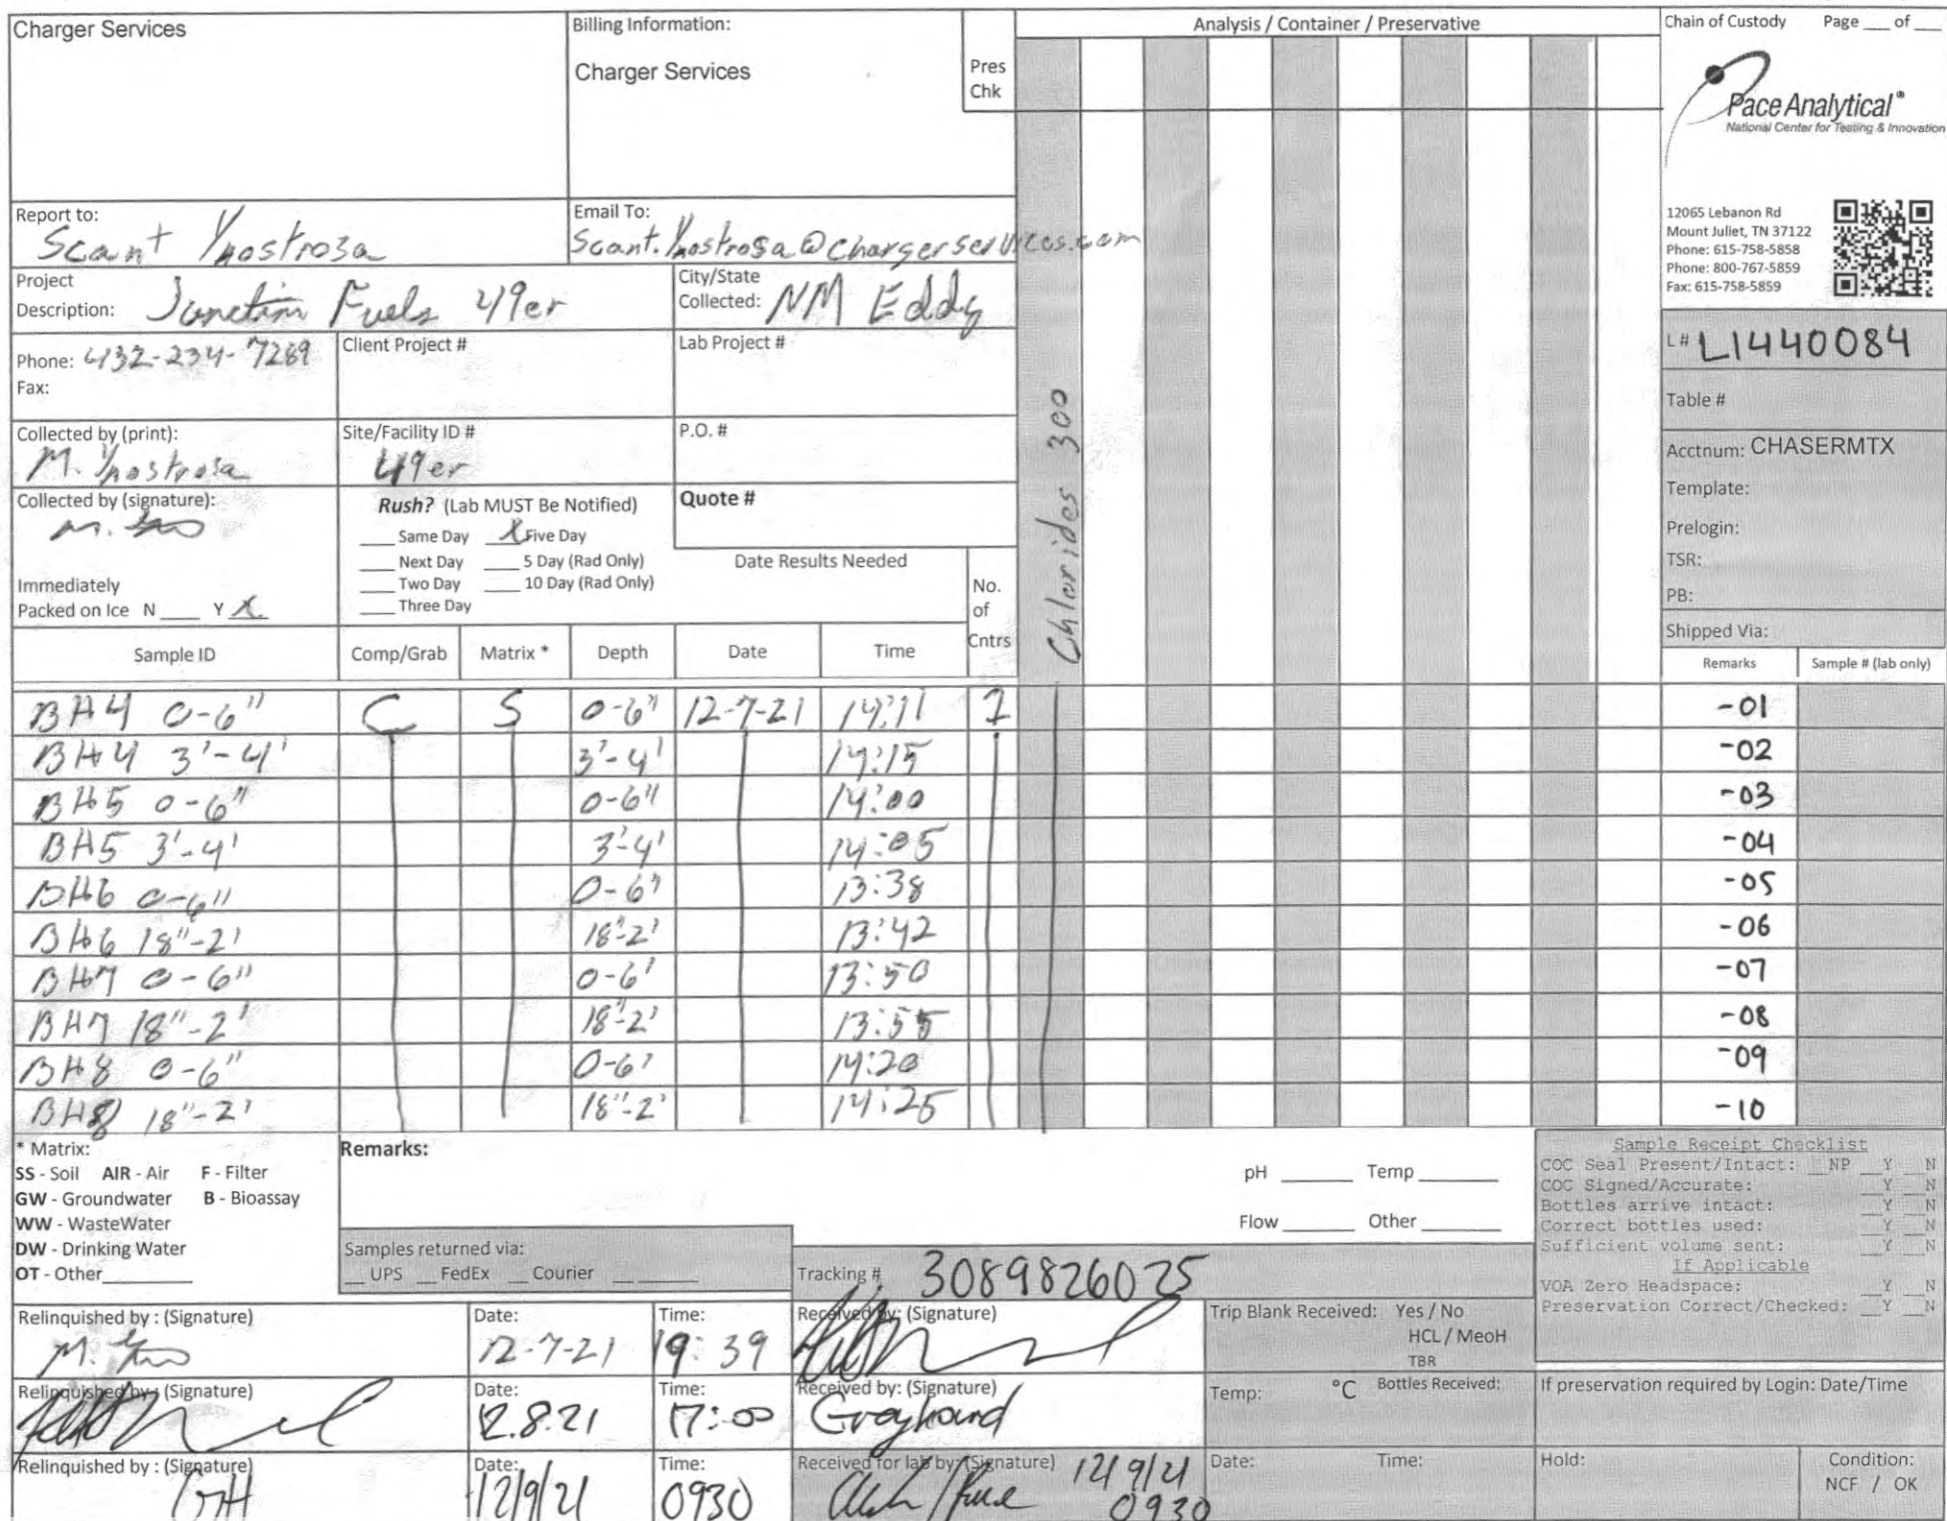 Charger Services
Billing Information:
Charger Services
Pres
Chk
Analysis / Container / Preservative
Chain of Custody Page ___ of ___
Pace Analytical®
National Center for Testing & Innovation
12065 Lebanon Rd
Mount Juliet, TN 37122
Phone: 615-758-5858
Phone: 800-767-5859
Fax: 615-758-5859
Report to:
Scant Ynostrosa
Email To:
Scant.Ynostrosa@chargerservices.com
Project
Description: Junction Fuels 49er
City/State
Collected: NM Eddy
L# L1440084
Phone: 432-234-7269
Fax:
Client Project #
Lab Project #
Table #
Collected by (print):
M. Ynostrosa
Site/Facility ID #
49er
P.O. #
Acctnum: CHASERMTX
Template:
Prelogin:
TSR:
PB:
Shipped Via:
Collected by (signature):
Immediately
Packed on Ice N ___ Y X
Rush? (Lab MUST Be Notified)
___ Same Day X Five Day
___ Next Day ___ 5 Day (Rad Only)
___ Two Day ___ 10 Day (Rad Only)
___ Three Day
Quote #
Date Results Needed
No.
of
Cntrs
Chlorides 300
Sample ID Comp/Grab Matrix * Depth Date Time Remarks Sample # (lab only)
BH4 0-6" C S 0-6" 12-7-21 14:11 1 -01
BH4 3'-4' 3'-4' 14:15 -02
BH5 0-6" 0-6" 14:00 -03
BH5 3'-4' 3'-4' 14:05 -04
BH6 0-6" 0-6" 13:38 -05
BH6 18"-2' 18"-2' 13:42 -06
BH7 0-6" 0-6' 13:50 -07
BH7 18"-2' 18"-2' 13:55 -08
BH8 0-6" 0-6' 14:20 -09
BH8 18"-2' 18"-2' 14:25 -10
* Matrix:
SS - Soil AIR - Air F - Filter
GW - Groundwater B - Bioassay
WW - WasteWater
DW - Drinking Water
OT - Other
Remarks:
pH ___ Temp ___
Flow ___ Other ___
Samples returned via:
__ UPS __ FedEx __ Courier
Tracking # 3089826025
Sample Receipt Checklist
COC Seal Present/Intact: __NP __Y __N
COC Signed/Accurate: __Y __N
Bottles arrive intact: __Y __N
Correct bottles used: __Y __N
Sufficient volume sent: __Y __N
If Applicable
VOA Zero Headspace: __Y __N
Preservation Correct/Checked: __Y __N
Relinquished by : (Signature)
Date:
12-7-21
Time:
19:39
Received by: (Signature)
Trip Blank Received: Yes / No
HCL / MeoH
TBR
Relinquished by : (Signature)
Date:
12.8.21
Time:
17:00
Received by: (Signature)
Greyhound
Temp: °C Bottles Received:
If preservation required by Login: Date/Time
Relinquished by : (Signature)
GH
Date:
12/9/21
Time:
0930
Received for lab by: (Signature)
12/9/21
0930
Date: Time:
Hold:
Condition:
NCF / OK